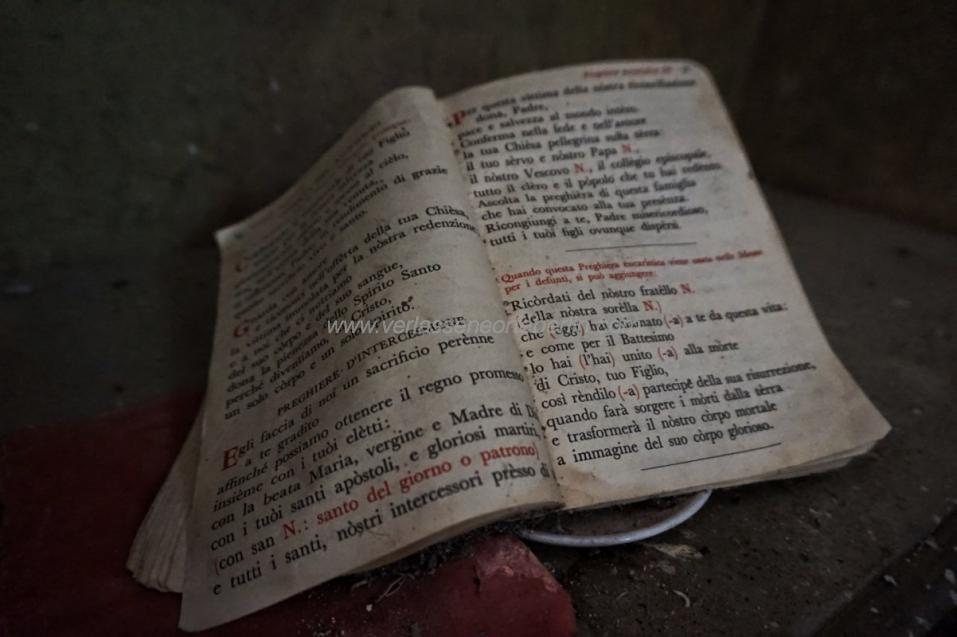 tuo Figlio
al cièlo,
venuta,
rendimento di grazie
e santo.
Guarda con amore
della tua Chièsa,
per la nòstra redenzione
e a noi
del suo còrpo e del suo sangue,
dona la pienezza dello Spirito Santo
perché diventiamo, in Cristo,
un solo còrpo e un solo spirito.
PREGHIERE D'INTERCESSIONE
Egli faccia di noi un sacrificio perènne
a te gradito
affinché possiamo ottenere il regno promesso
insieme con i tuòi elètti:
con la beata Maria, vergine e Madre di
con i tuòi santi apòstoli, e gloriosi martiri,
(con san N.: santo del giorno o patrono)
e tutti i santi, nòstri intercessori prèsso di
Preghiera eucaristica III
Per questa vittima della nòstra riconciliazione
dona, Padre,
pace e salvezza al mondo intèro.
Conferma nella fede e nell'amore
la tua Chièsa pellegrina sulla tèrra:
il tuo sèrvo e nòstro Papa N.,
il nòstro Vescovo N., il collègio episcopale,
tutto il clèro e il pòpolo che tu hai redènto.
Ascolta la preghièra di questa famiglia
che hai convocato alla tua presènza.
Ricongiungi a te, Padre misericordioso,
tutti i tuòi figli ovunque dispèrsi.
Quando questa Preghiera eucaristica viene usata nelle Messe
per i defunti, si può aggiungere:
Ricòrdati del nòstro fratèllo N.
(della nòstra sorèlla N.)
che (òggi) hai chiamato (-a) a te da questa vita:
e come per il Battesimo
lo hai (l'hai) unito (-a) alla mòrte
di Cristo, tuo Figlio,
così rèndilo (-a) partecipe della sua risurrezione,
quando farà sorgere i mòrti dalla tèrra
e trasformerà il nòstro còrpo mortale
a immagine del suo còrpo glorioso.